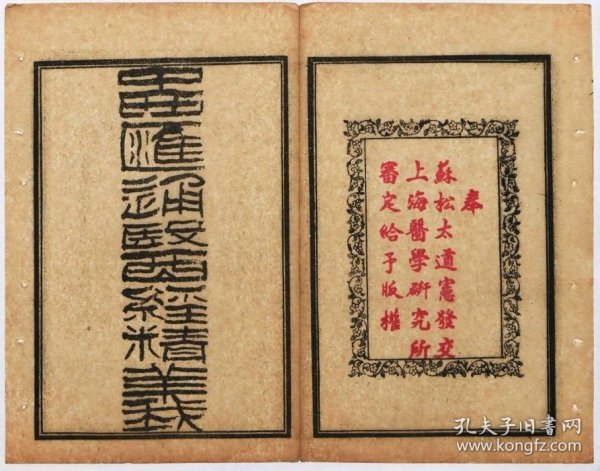 奉
蘇松太道憲發交
上海醫學研究所
審定給予版權
中西匯通醫經精義
孔夫子旧书网
www.kongfz.com